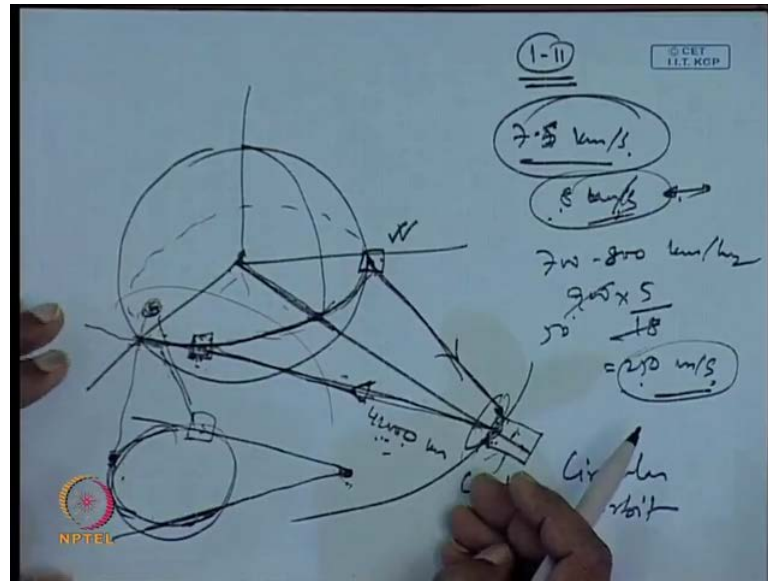 1-11
© CET
I.I.T. KGP
7.5 km/s
8 km/s
700 - 800 km/hr
900 × 5
50 18
= 250 m/s
42000 km
Circular
orbit
NPTEL